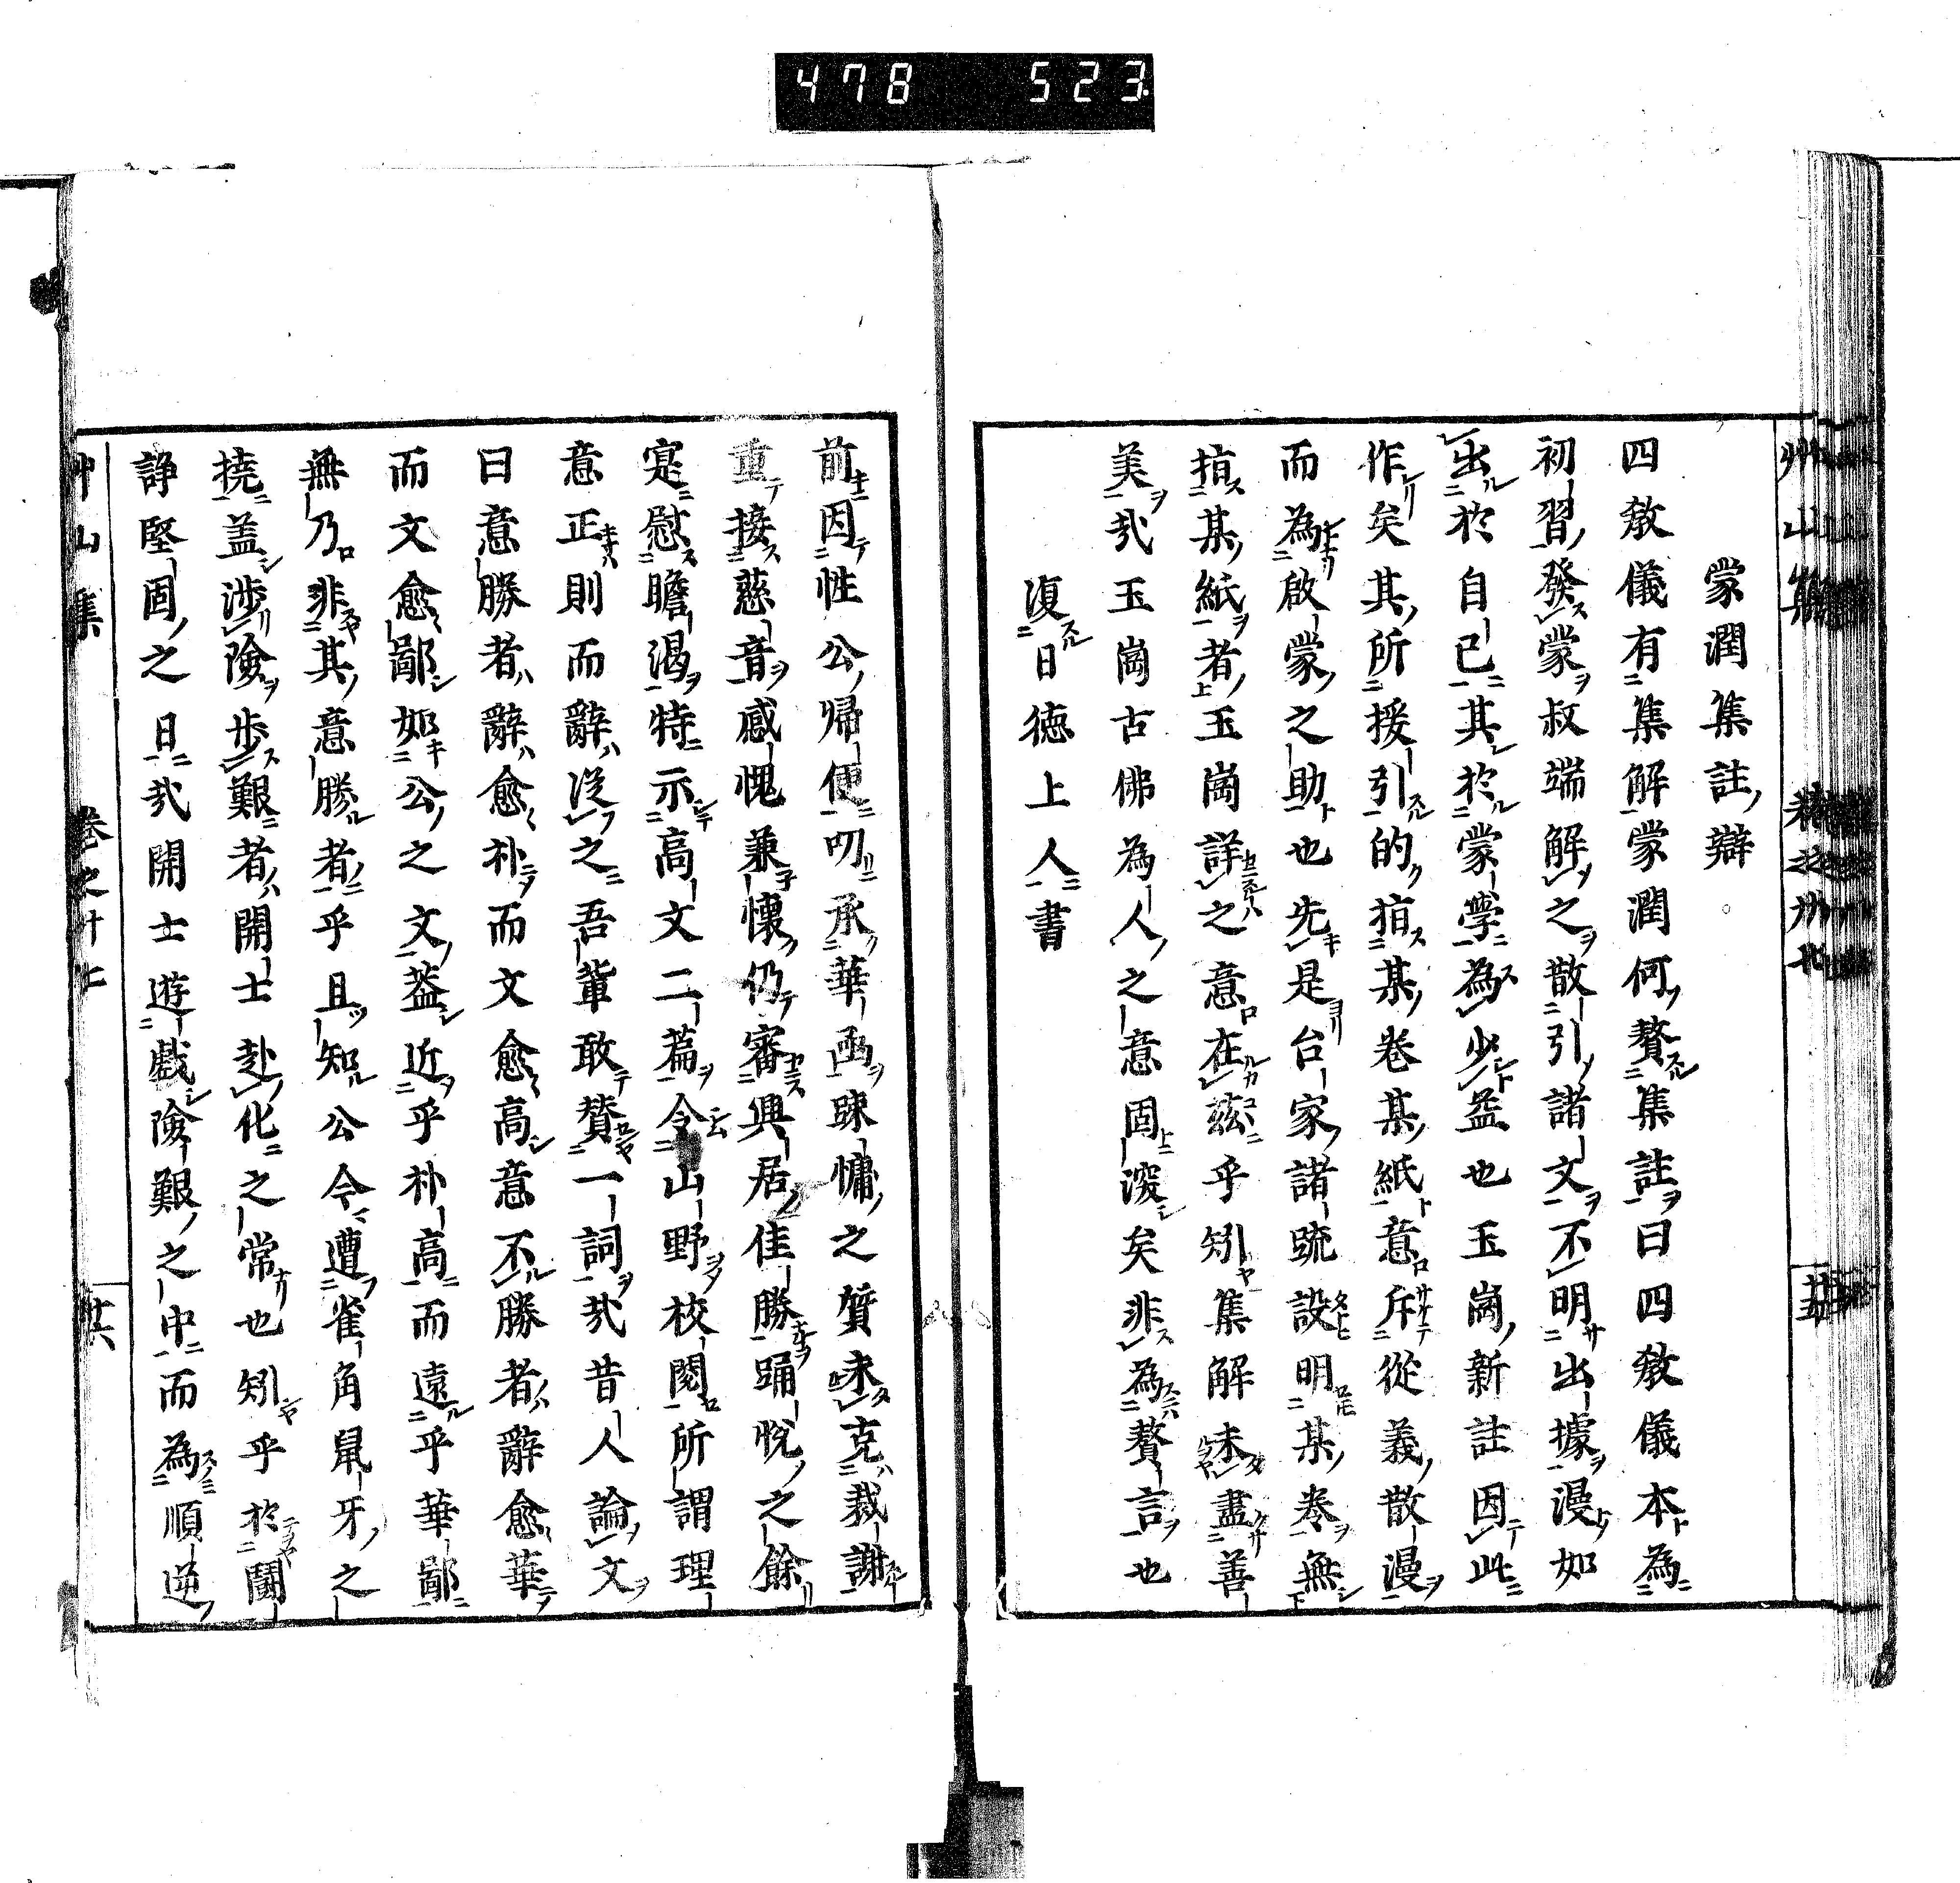 478 523
蒙潤集註辯
四教儀有集解蒙潤何贅集註曰四教儀本為
初習發蒙叔端解之散引諸文不明出據漫如
出於自己其於蒙學為少益也玉崗新註因此
作矣其所援引的指某卷某紙意斥從義散漫
而為啟蒙之助也先是台家諸䟽設明某卷無
指某紙者玉崗詳之意在茲乎矧集解未盡善
美哉玉崗古佛為人之意固深矣非為贅言也
復日徳上人書
前因性公帰便叨承華函踈慵之質未克裁謝
重接慈音感愧兼懐仍審興居佳勝踊悦之餘
寔慰瞻渇特示高文二篇令山野校閲所謂理
意正則而辭従之吾輩敢賛一詞哉昔人論文
曰意勝者辭愈朴而文愈高意不勝者辭愈華
而文愈鄙如公之文葢近乎朴高而遠乎華鄙
無乃非其意勝者乎且知公今遭雀角鼠牙之
撓盖渉險歩艱者開士赴化之常也矧乎於鬪
諍堅固之日哉開士遊戯險艱之中而為順逆
艸山集 卷之廾七 廿六